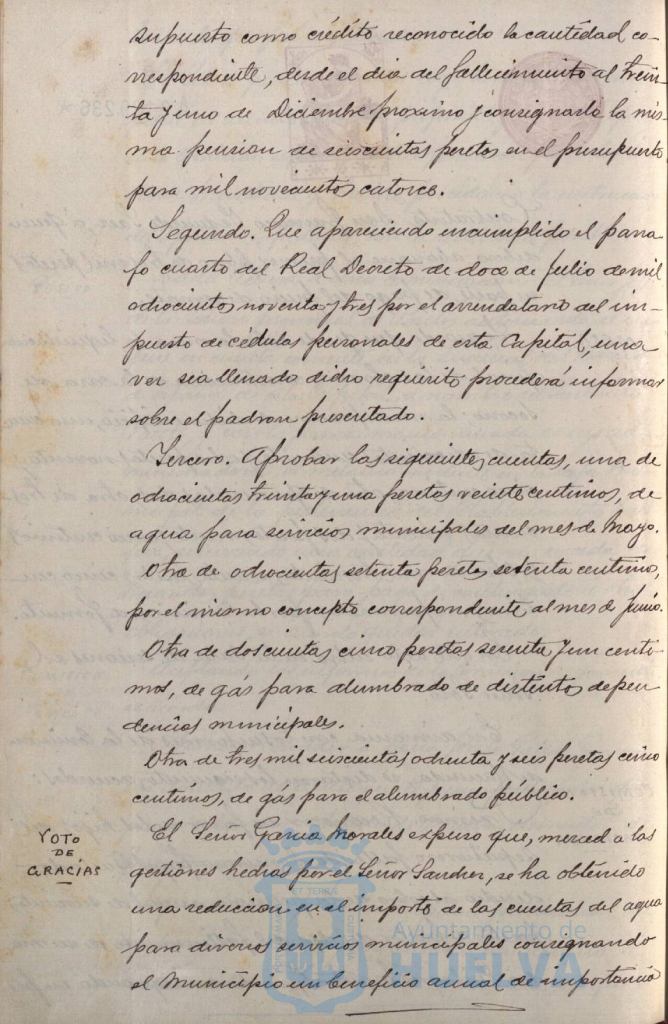 supuesto como crédito reconocido la cantidad co-
rrespondiente, desde el dia del fallecimiento al trein-
ta y uno de Diciembre proximo y consignarlo la mis-
ma pension de seiscientas pesetas en el presupuesto
para mil novecientos catorce.
Segundo. Que apareciendo incumplido el parra-
fo cuarto del Real Decreto de doce de Julio de mil
ochocientos noventa y tres por el arrendatario del im-
puesto de cédulas personales de esta Capital, una
vez sea llenado dicho requisito procederá informar
sobre el padron presentado.
Tercero. Aprobar las siguientes cuentas, una de
ochocientas treinta y una pesetas veinte centimos, de
agua para servicios municipales del mes de Mayo.
Otra de ochocientas setenta pesetas setenta centimos,
por el mismo concepto correspondiente al mes de Junio.
Otra de doscientas cinco pesetas sesenta y un centi-
mos, de gás para alumbrado de distintos depen
dencias municipales.
Otra de tres mil seiscientas ochenta y seis pesetas cinco
centimos, de gás para el alumbrado público.
VOTO
DE
GRACIAS
El Señor Garcia Morales expuso que, merced á las
gestiones hechas por el Señor Sanchez, se ha obtenido
una reduccion en el importe de las cuentas del agua
para diversos servicios municipales consignando
el Municipio un beneficio anual de importancia
Ayuntamiento de
HUELVA